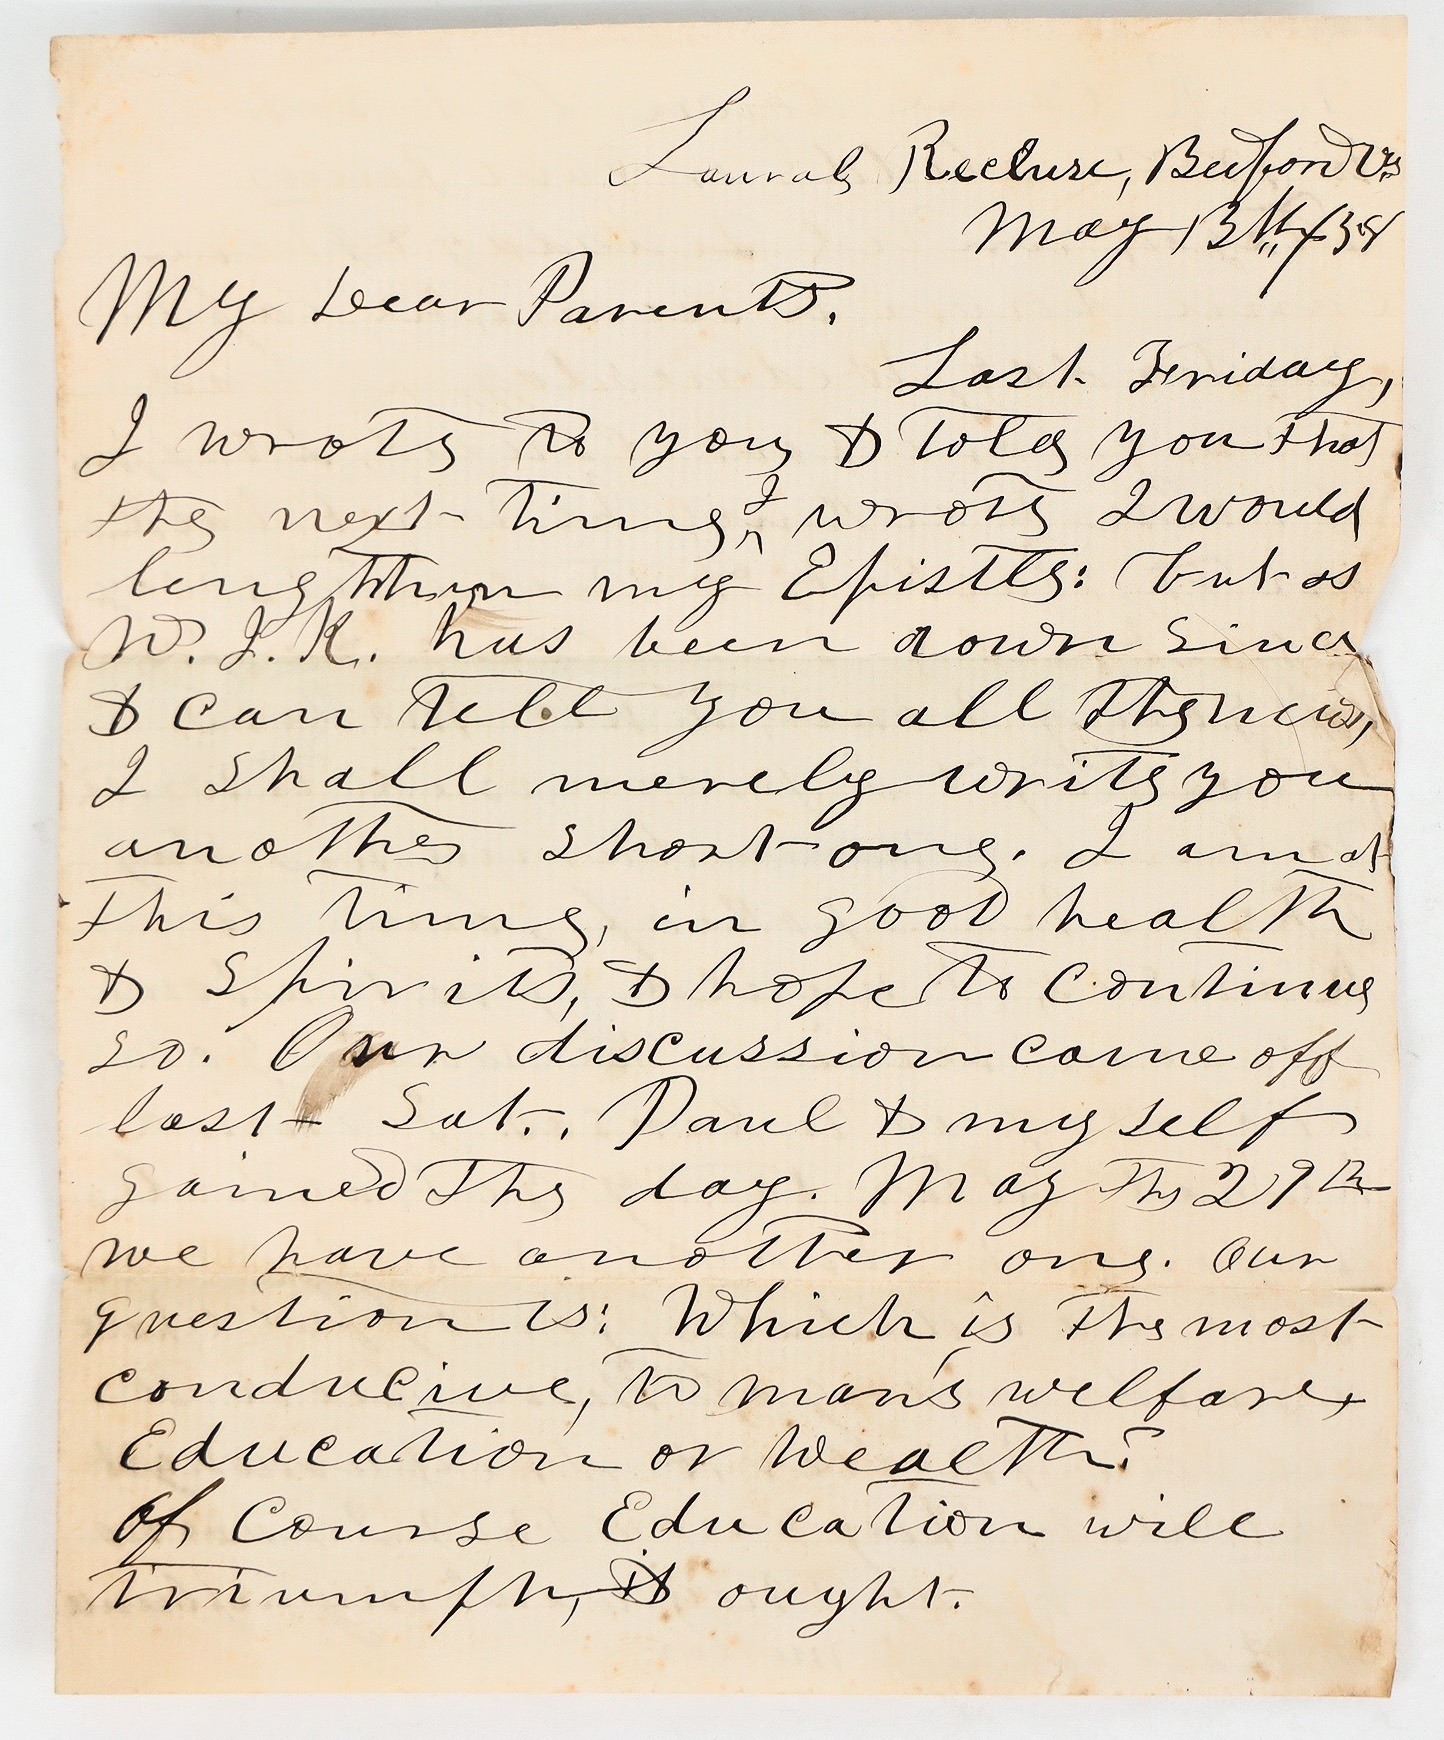 Laurel Recluse, Bedford Va
May 13th /38
My Dear Parents.
Last Friday,
I wrote to you & told you that
the next time, I wrote I would
lengthen my Epistle: but as
W. J. K. has been down since
& can tell you all the news,
I shall merely write you
another short one. I am at
this time, in good health
& spirits, & hope to continue
so. Our discussion came off
last Sat., Paul & myself
gained the day. May the 29th
we have another one. Our
question is: Which is the most
conducive, to man's welfare,
Education or Wealth?
Of Course Education will
triumph, it ought.